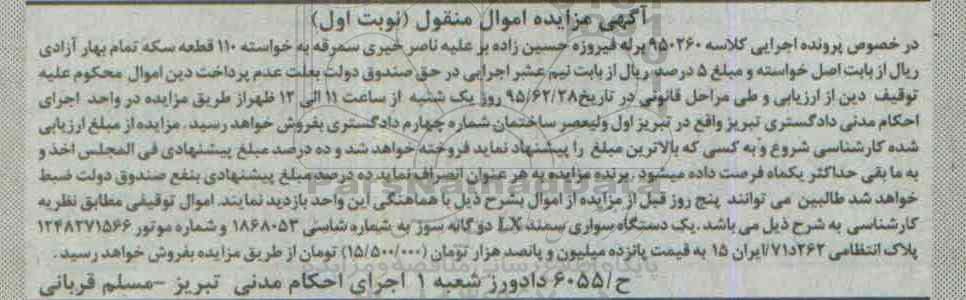 آگهی مزایده اموال منقول (نوبت اول)
در خصوص پرونده اجرایی کلاسه ۹۵۰۲۶۰ برله فیروزه حسین زاده بر علیه ناصر خیری سمرقه به خواسته ۱۱۰ قطعه سکه تمام بهار آزادی
ریال از بابت اصل خواسته و مبلغ ۵ درصد ریال از بابت نیم عشر اجرایی در حق صندوق دولت بعلت عدم پرداخت دین اموال محکوم علیه
توقیف دین از ارزیابی و طی مراحل قانونی در تاریخ ۹۵/۶۲/۲۸ روز یک شنبه از ساعت ۱۱ الی ۱۲ ظهر از طریق مزایده در واحد اجرای
احکام مدنی دادگستری تبریز واقع در تبریز اول ولیعصر ساختمان شماره چهارم دادگستری بفروش خواهد رسید. مزایده از مبلغ ارزیابی
شده کارشناسی شروع و به کسی که بالاترین مبلغ را پیشنهاد نماید فروخته خواهد شد و ده درصد مبلغ پیشنهادی فی المجلس اخذ و
به ما بقی حداکثر یکماه فرصت داده میشود. برنده مزایده به هر عنوان انصراف نماید ده درصد مبلغ پیشنهادی بنفع صندوق دولت ضبط
خواهد شد طالبین می توانند پنج روز قبل از مزایده از اموال بشرح ذیل با هماهنگی این واحد بازدید نمایند. اموال توقیفی مطابق نظریه
کارشناسی به شرح ذیل می باشد. یک دستگاه سواری سمند LX دو گانه سوز به شماره شاسی ۱۸۶۸۰۵۳ و شماره موتور ۱۲۴۸۲۷۱۵۶۶
پلاک انتظامی ۲۶۲د۷۱/ایران ۱۵ به قیمت پانزده میلیون و پانصد هزار تومان (۱۵/۵۰۰/۰۰۰) تومان از طریق مزایده بفروش خواهد رسید.
ح/۶۰۵۵ دادورز شعبه ۱ اجرای احکام مدنی تبریز -مسلم قربانی
ParsNamadData